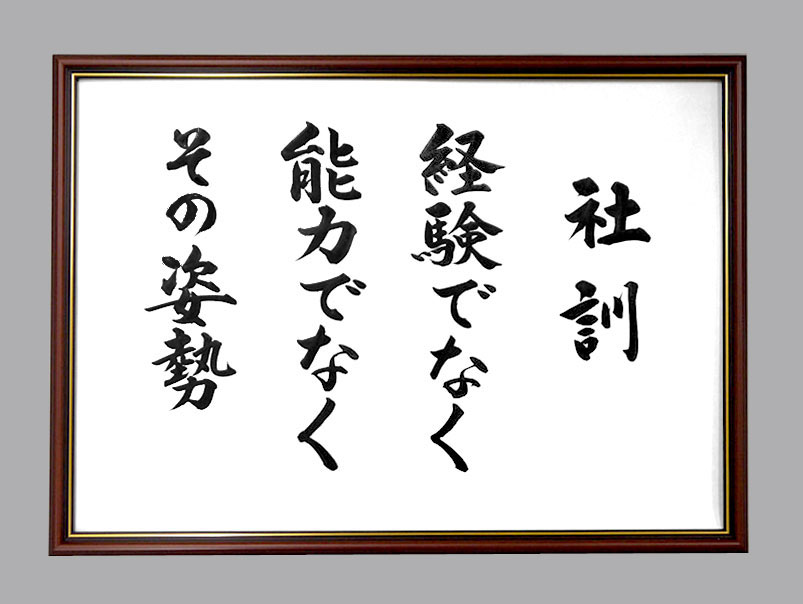 社訓
経験でなく
能力でなく
その姿勢